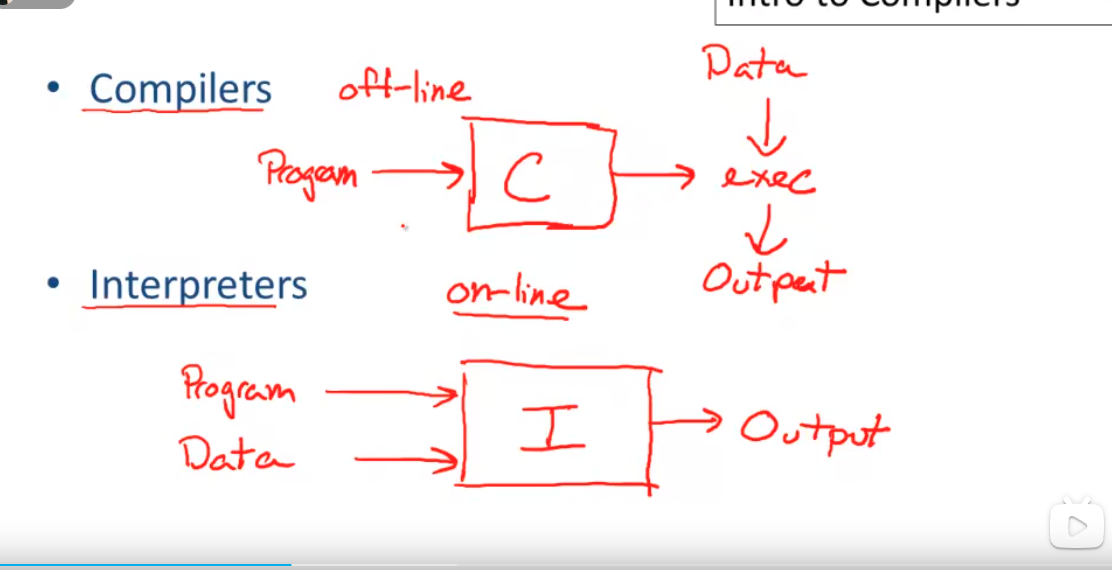 Intro to Compilers
• Compilers off-line
Data
Program → C → exec
Output
• Interpreters on-line
Program
I → Output
Data